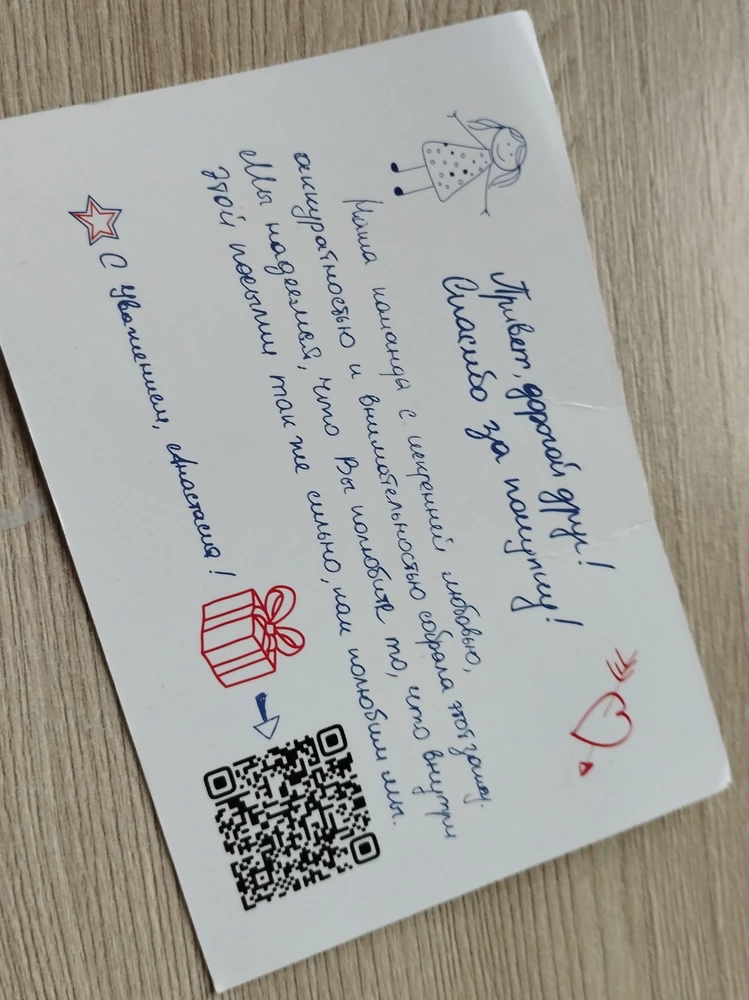 Привет, дорогой друг!
Спасибо за покупку!
Наша команда с искренней любовью,
аккуратностью и внимательностью собрала этот заказ.
Мы надеемся, что Вы полюбите то, что внутри
этой посылки так же сильно, как полюбили мы.
С уважением, Анастасия!